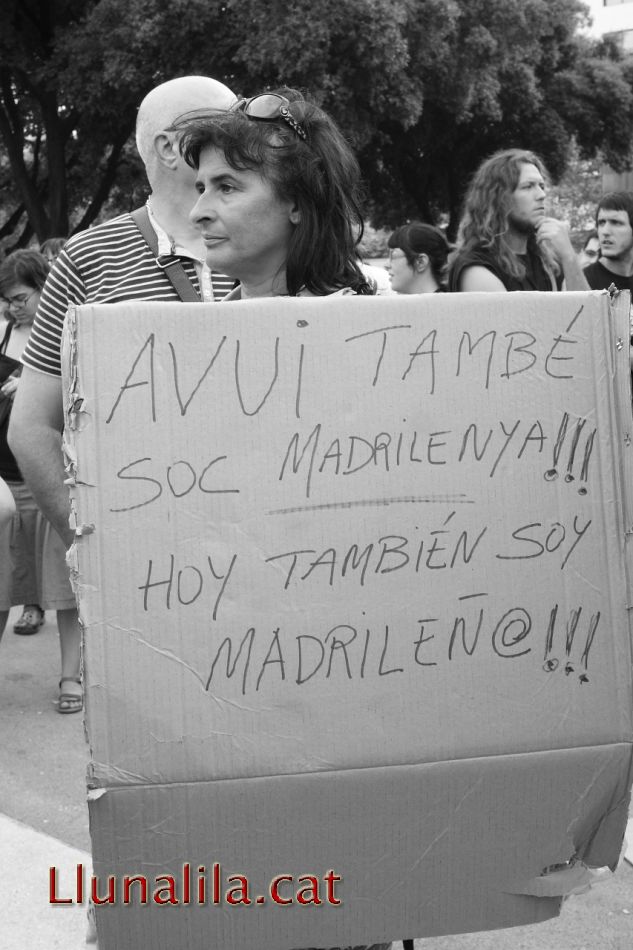 AVUI TAMBÉ
SOC MADRILENYA!!!
HOY TAMBIÉN SOY
MADRILEÑ@!!!
Llunalila.cat